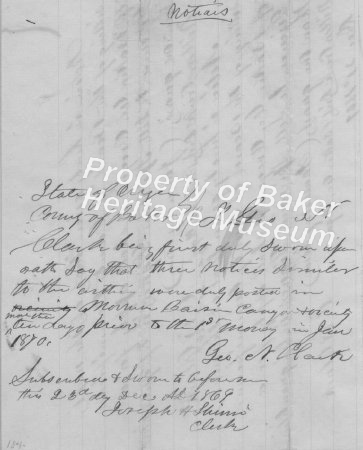 Notices
State of Oregon
County of Baker
Clark being first duly sworn upon
oath say that three notices similar
to the within were duly posted in
Mormon Basin Canyon & vicinity
ten days prior to the 1st Monday in Jan
1870.
Geo. N. Clark
Subscribed & Sworn to before me
this 23rd day Dec AD 1869
Joseph H Shinn
Clerk
Property of Baker
Heritage Museum